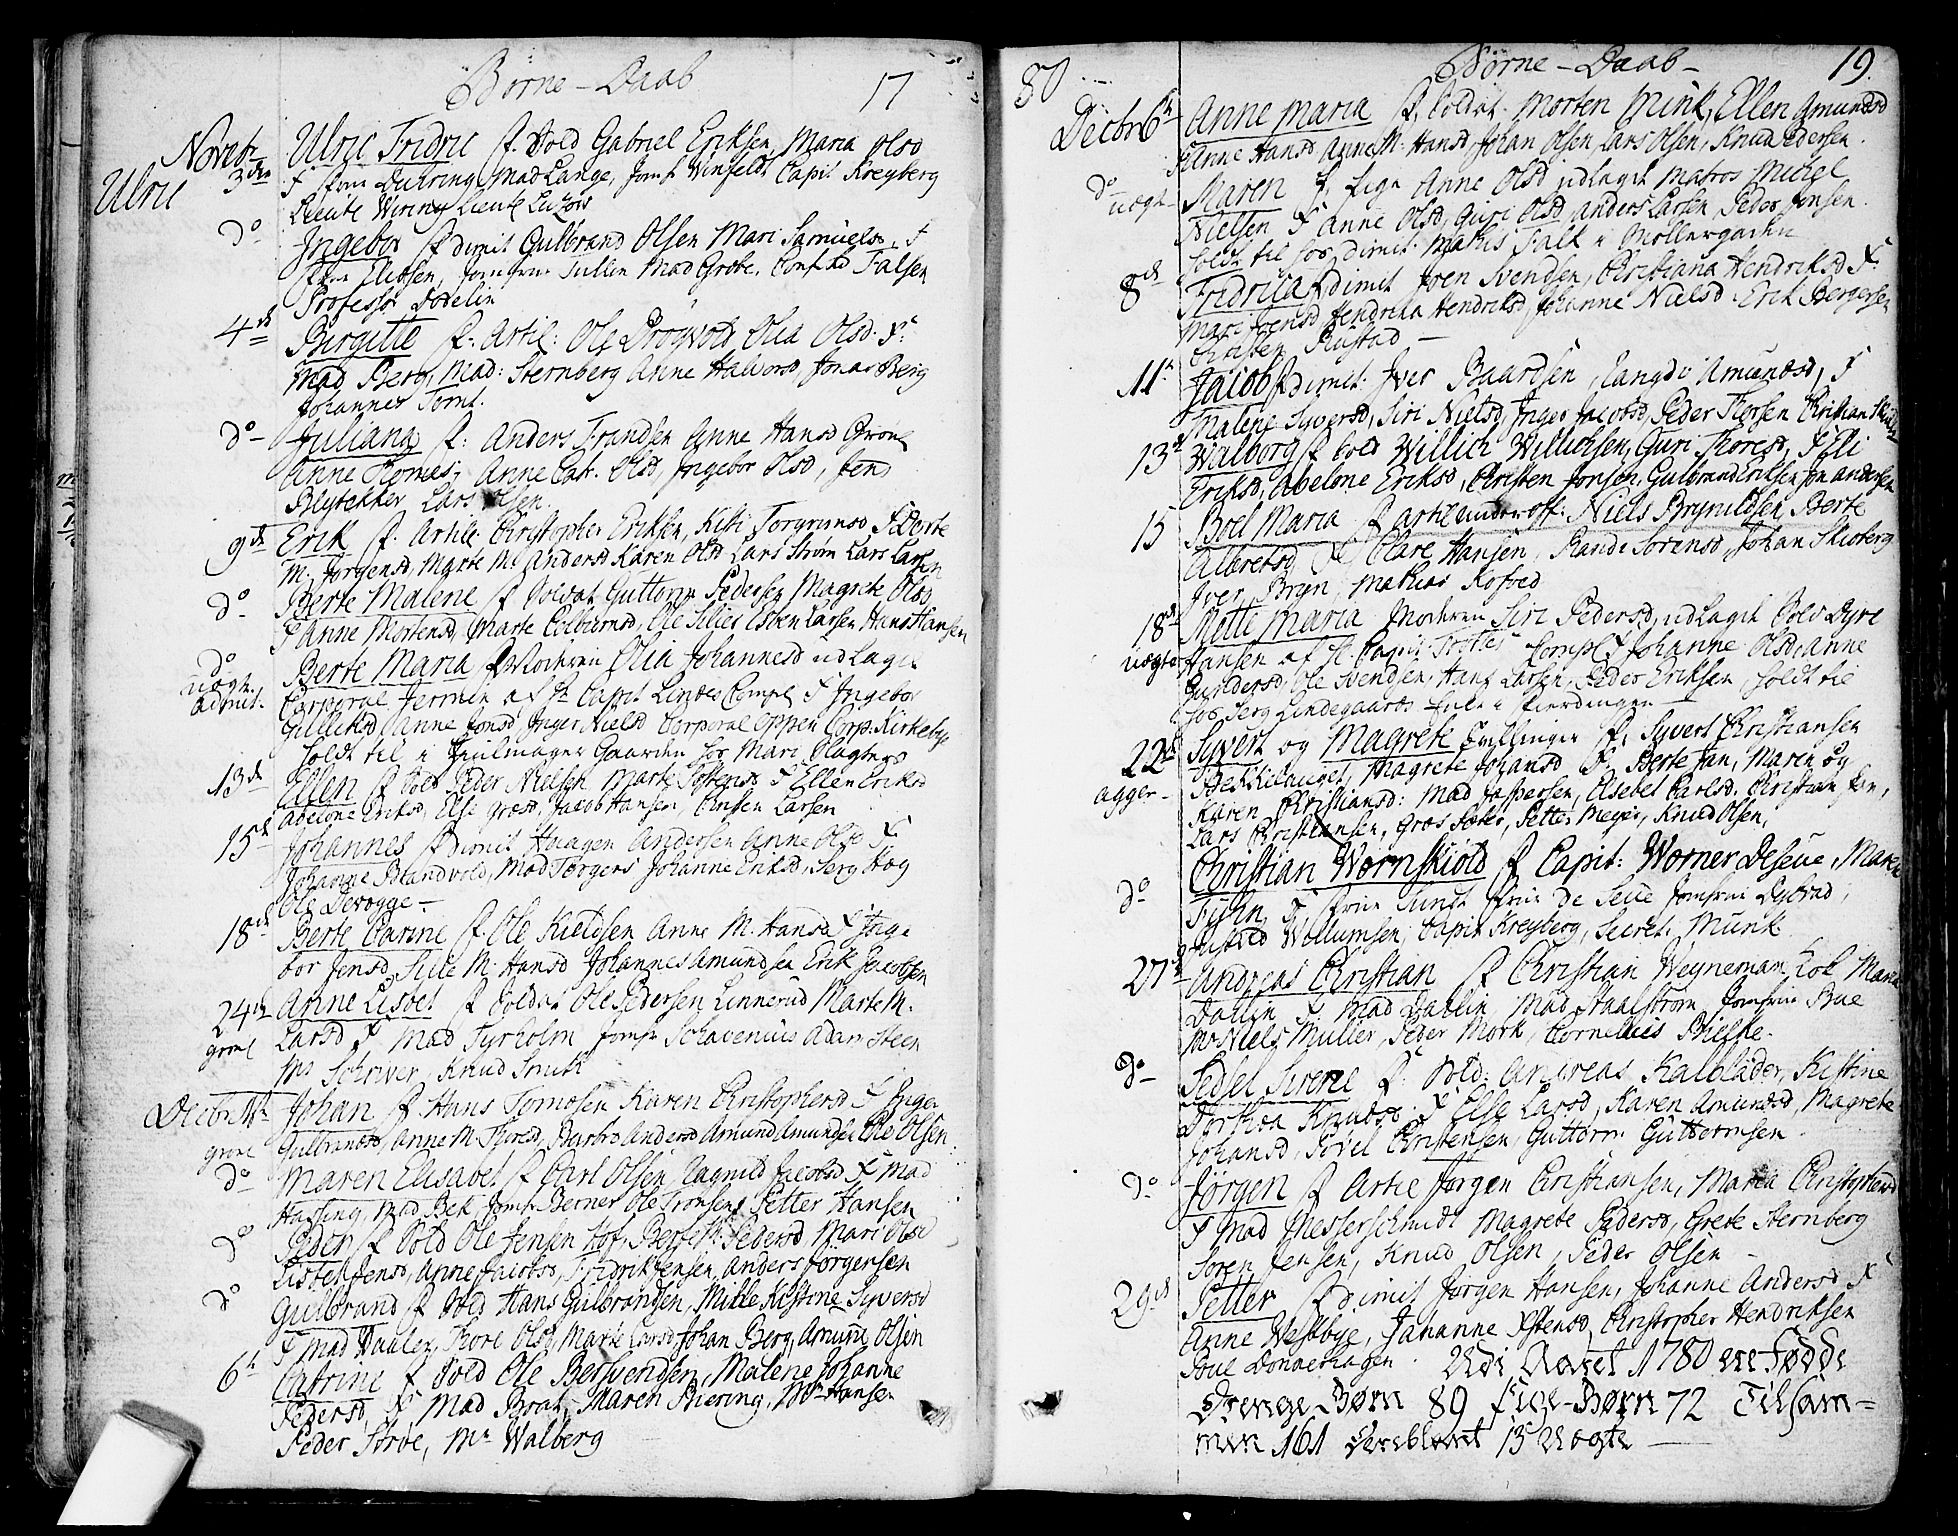 Børne-Daab 17
Novebr Ulric Fridric f. Sold Gabriel Eriksen, Maria Olsd
3den F frue Duhring, Mad Lange, Jomf. Winfeldt Capit Kreyberg
Ulric
Lieute Wiring Lieut Lützow
do Ingebor f dimit Gulbrand Olsen Mari Samuelsd. F
frue Elieson, Jomfrue Tullin Mad Grobe, Conf. Rd Falsen
Professor Dodelin
4de Birgitte f. Artil: Ole Olia Olsd. F:
Mad Berg, Mad: Sternberg Anne Halvorsd, Jonas Berg
Johannes
do Juliana f: Anders Frandsen Anne Hansd Grønl
Anne Anne Cat. Olsd, Ingebor Olsd, Jens
Blytekker Lars Olsen
9de Erik f. Artil. Christopher Eriksen, Kisti Torgrimsd F Berte
M. Jørgensd, Marte M. Andersd Karen Olsd Lars Strøm Lars Larsen
do Berte Malene f Soldat Guttorm Pedersen Magrete Olsd
F Anne Mortensd, Marte Colbiørnsd, Ole Silies Esben Larsen Hans Hansen
do Berte Maria f Moderen Olia Johannesd udlagt
uægt. Corporal af Hr Capit Lindes Comp F Ingebor
admit. Anne Jonsd Inger Nielsd Corporal Oppen Corp. Kirkebye
holdt til i Gaarden hos Mari
13de Ellen f Sold Peder Nielsen Marte F Ellen Eriksd
Abelone Eriksd, Else Jacob Hansen, Larsen
15de Johannes f dimit Haagen Andersen Anne Olsd F
Johanne Brandvold, Mad Torgers Johanne Eriksd, Serg Høg
Ole
18de Berte Carine f. Ole Kieldsen Anne M. Hansd F Inge
bor Jensd, Sille M. Hansd Johannes Amundsen Erik Jacobsen
24de Anne Lisbet f Soldat Ole Pedersen Linnerud Marte M.
grønl Larsd F Mad Tyrholm Jomfr Schavenius Adam Steen
Mr Schriver, Knud Smith
Decbr Johan f Hans Tomosen Karen Christophersd F Inge
grønl Gulbrandsd, Anne M. Thoresd, Barbro Andersd Amund Amundsen Ole Olsen
do Maren Elisabet f Carl Olsen Ragnild Jacobsd F Mad
Harsing, Mad Bek Jomfr Berner Ole Tronsens Petter Hansen
do Peder f Sold Ole Jensen Hof, Berte M. Pedersd Mari Olsd
Lisbet Jensd, Anne Jacobsd, Fridrik Jensen, Anders Jørgensen
do Gulbrand f Sold Hans Gulbrandsen, Mille Kistine Syversd
F Mad Thore Olsd, Marte Larsd Johan Berg, Amund Olsen
6te Catrine f Sold Ole Malene Johanne
Pedersd, F Mad Brat, Maren Biering, Mr Hansen
Peder Stroe, Mr Walberg
80 Børne-Daab- 19
Decbr 6te Anne Maria f. Soldat. Morten Munk, Ellen Amundsd
F Anne Hansd Anne M. Hansd Johan Olsen, Lars Olsen, Knud Pedersen.
do Maren f. Pige Anne Olsd udlagt Matros Michel
uægt- Nielsen F Anne Olsd, Guri Olsd, Anders Larsen Peder Jonsen.
holdt til hos dimit. Mathis Falk i Møllergaden
8de Fridrica f dimit Joen Svendsen, Christiana Hendriksd F:
Mari Jensd Hendrika Hendriksd, Johanne Nielsd Erik Bergersen
Christen Rustad -
11te Jacob f dimit. Iver Baardsen, Langdi Amundsd, F
Malene Syversd, Siri Nielsd, Inger Jacobsd, Peder Thorsen Christian
13de Walborg f Sold Willich Willichsen, Guri Thoresd, F Eli
Eriksd, Abelone Eriksd, Christen Jonsen, Gulbrand Eriksen Jon Andersen
15 Boel Maria f Artil underoff. Niels Brynildsen Berte
Albretsd F Clare Hansen, Rande Sørensd, Johan Skioberg
Iver Bryn, Mathias Kofoed
18de Mette Maria Moderen Siri Pedersd, udlagt Sold Dyre
uægte Hansen af Hr Capit Comp F Johanne Olsd, Anne
Gundersd, Ole Svendsen, Hans Larsen, Peder Eriksen, holdt til
hos Serg Lindegaards i Pierdingen -
22de Syvert og Magrete Tvillinger f. Syvert Christiansen
agger- Magrete Johansd F. Berte Jan, Maren og
Karen Christiansd: Mad Jespersen, Elsebet Carlsd. Christian Jan,
Lars Christiansen, Petter Meyer, Knud Olsen,
do Christian Wornskiold f Capit: Worner De Seue, Maren
F frue frue De Seue Jomfrue Dybvad,
Justrd Wollumsen, Capit Kreyberg, Secret. Munk
27de Andreas Christian f Christian Weyneman, Kok Maria
Dallin F. Mad Dallin Mad Staalstrøm Jomfrue Bue
Mr Niels Muller, Peder Mork, Cornelius Bielke.
do Sedsel Sirene f. Sold. Andreas Kalblader, Kistine
Dorthea Knudsd. F Else Larsd, Karen Amundsd, Magrete
Johansd, Tovel Christensen, Guttorm Guttormsen
do Jørgen f Artil Jørgen Christiansen, Maria Christophersd
F Mad Messerschmidt Magrete Pedersd, Grete Sternberg
Søren Jensen, Knud Olsen, Peder Olsen -
29de Petter f dimit Jørgen Hansen, Johanne Andersd F
Anne Westbye, Johanne Christopher Hendriksen
Poul Udi Aaret 1780 ere Fødde
Drenge-Børn 89 Pige-Børn 72 Tilsam=
men 161 Deriblant 15 Uægte -